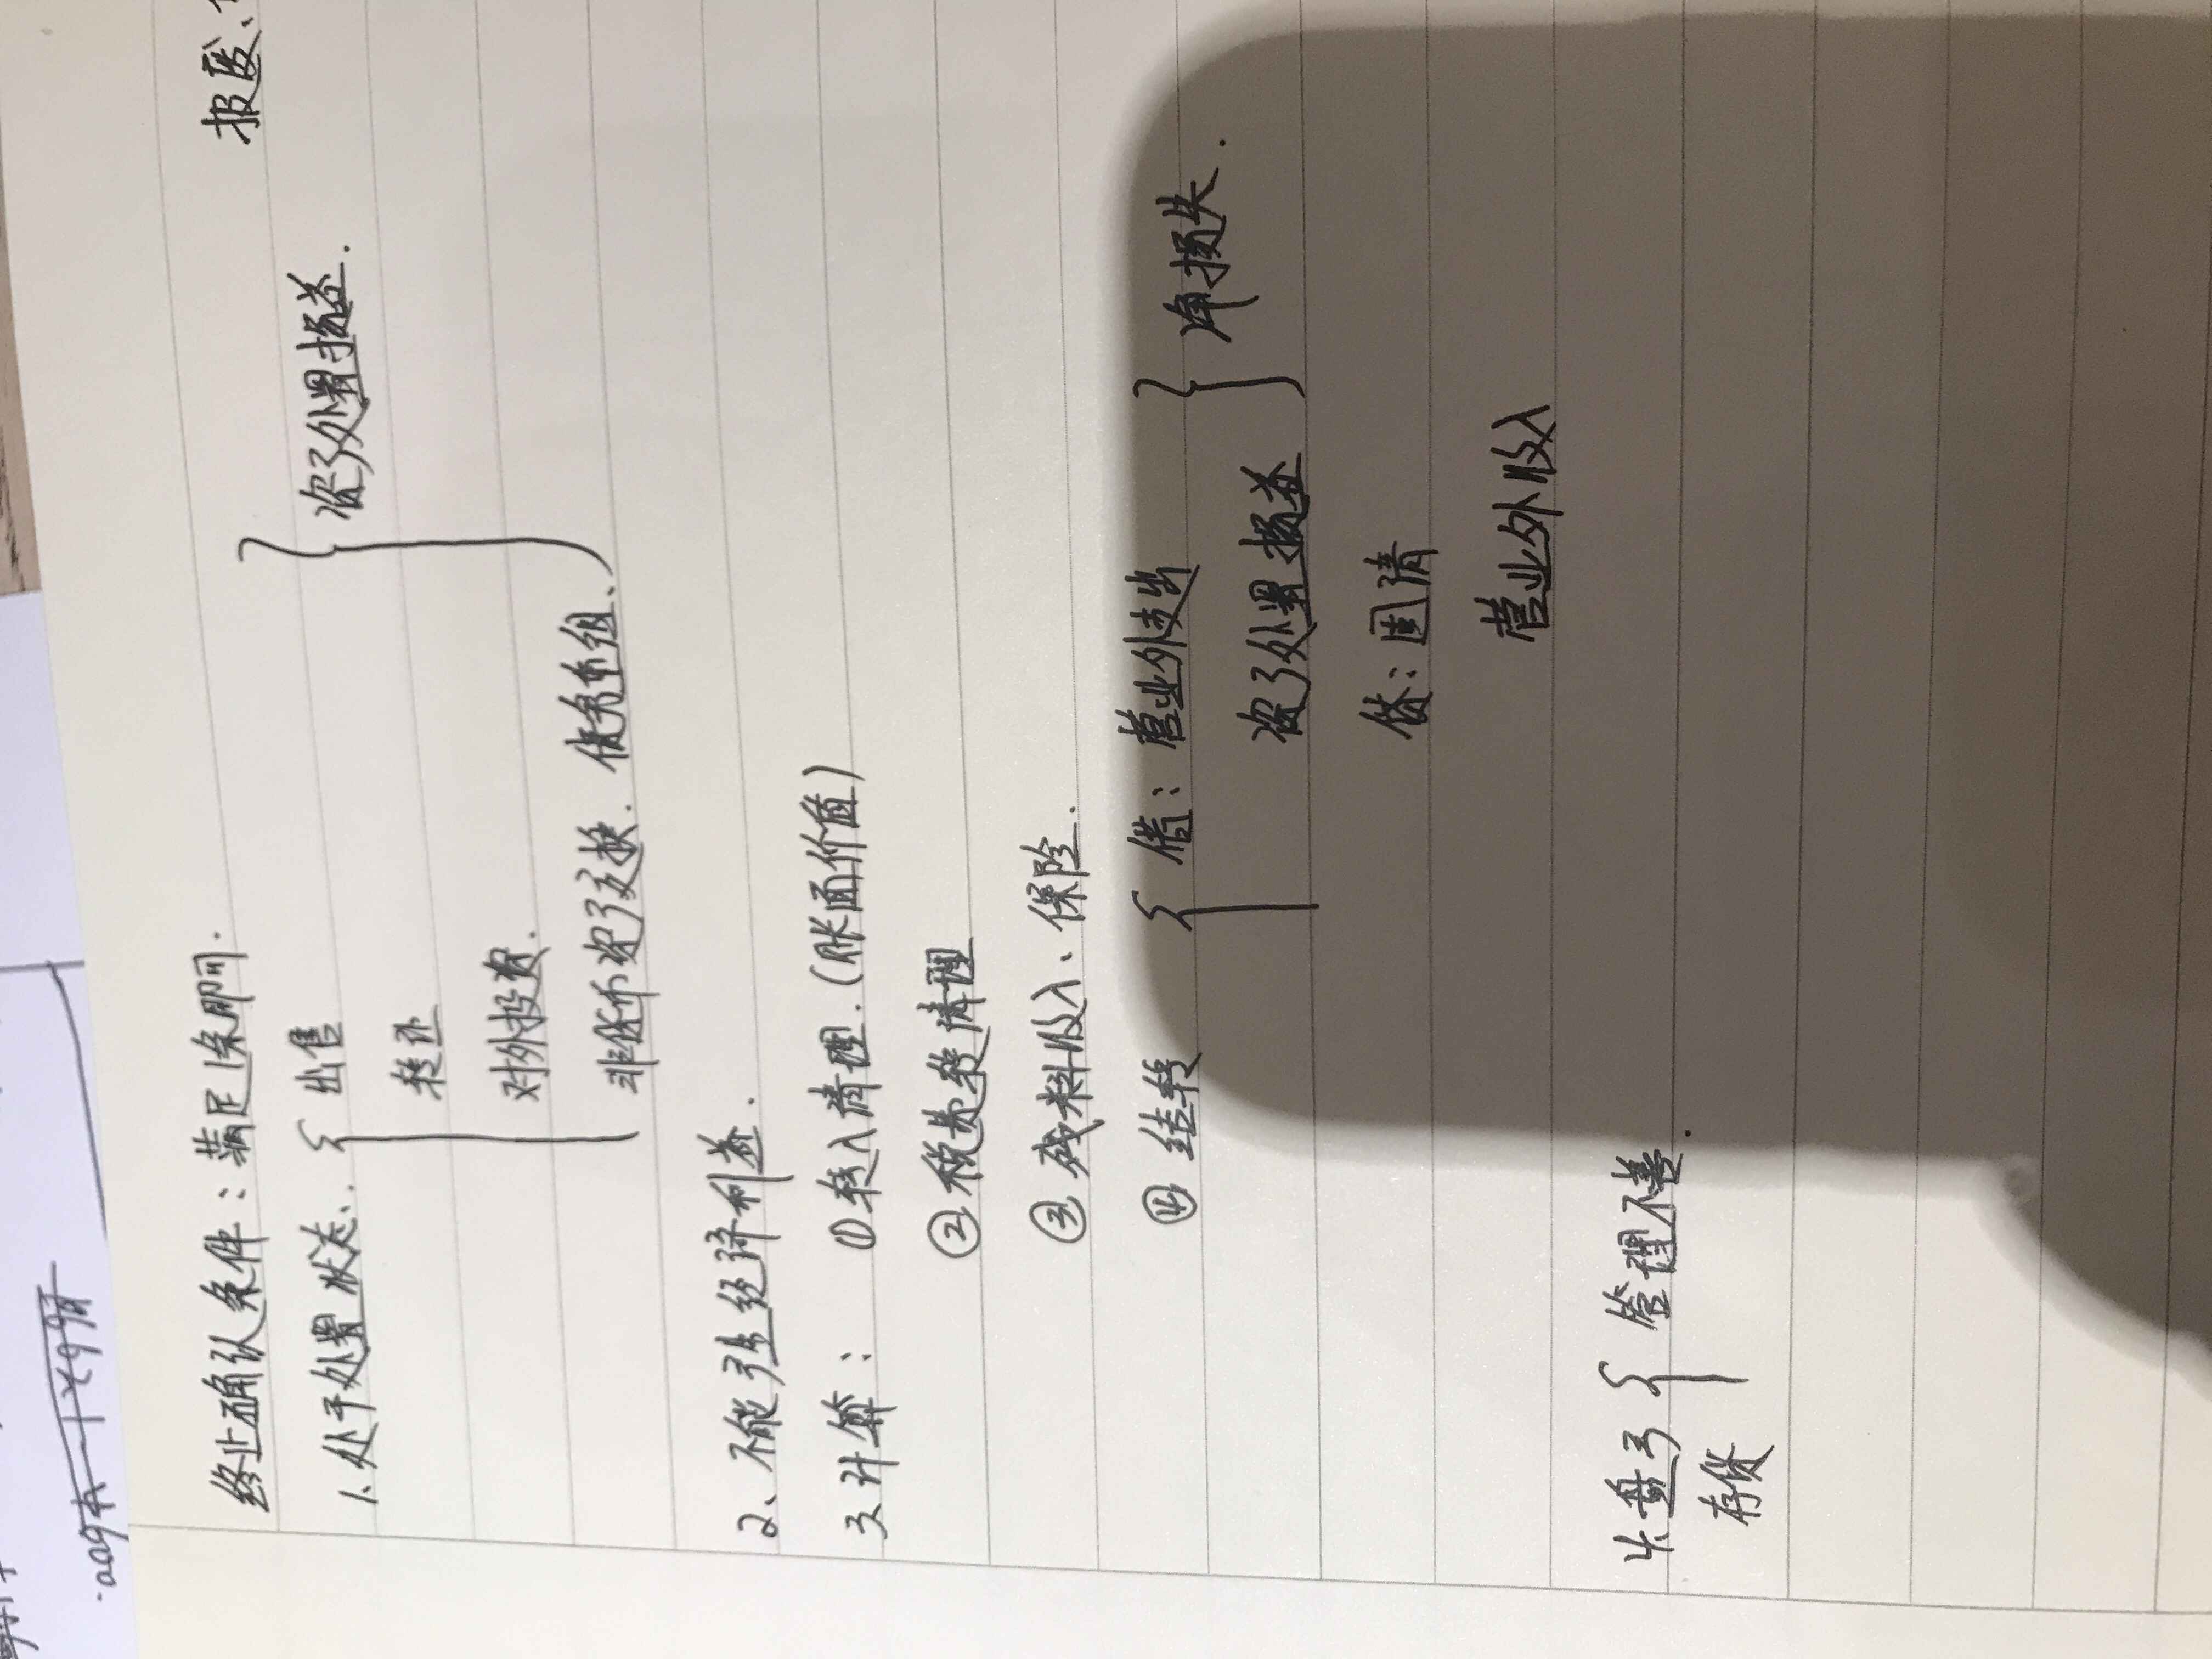 终止确认条件：满足1条即可.
报废、
1、处于处置状态、{ 出售 } 资了处置损益.
转让
对外投资.
非货币资了交换. 债务重组、
2、不能产生经济利益.
3、计算： ①转入清理.(账面价值)
②税费转清理
③残料收入、保险.
④结转 { 借：营业外支出 } 净损失.
资了处置损益
贷：固清
营业外收入
4、盘亏 { 管理不善.
存货